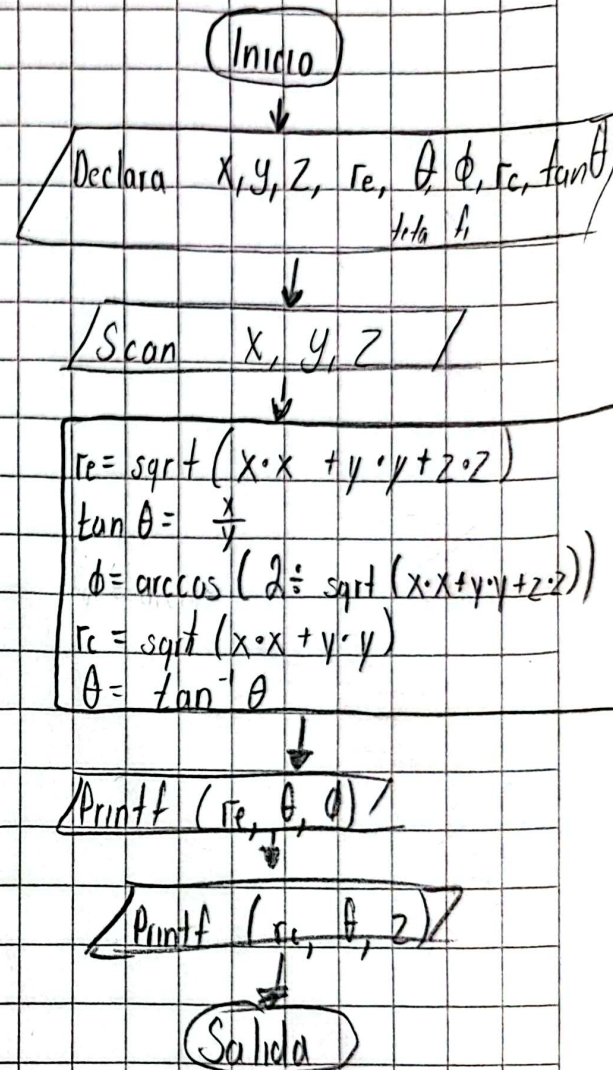 Inicio
Declara x, y, z, re, θ, ϕ, rc, tanθ
teta fi
Scan x, y, z
re = sqrt (x·x + y·y + z·z)
tan θ = x/y
ϕ = arccos (z ÷ sqrt (x·x + y·y + z·z))
rc = sqrt (x·x + y·y)
θ = tan⁻¹ θ
Printf (re, θ, ϕ)
Printf (rc, θ, z)
Salida